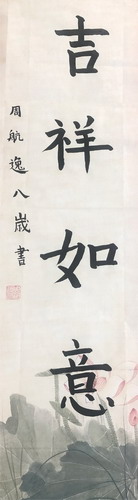 吉祥如意
周航逸八歲書